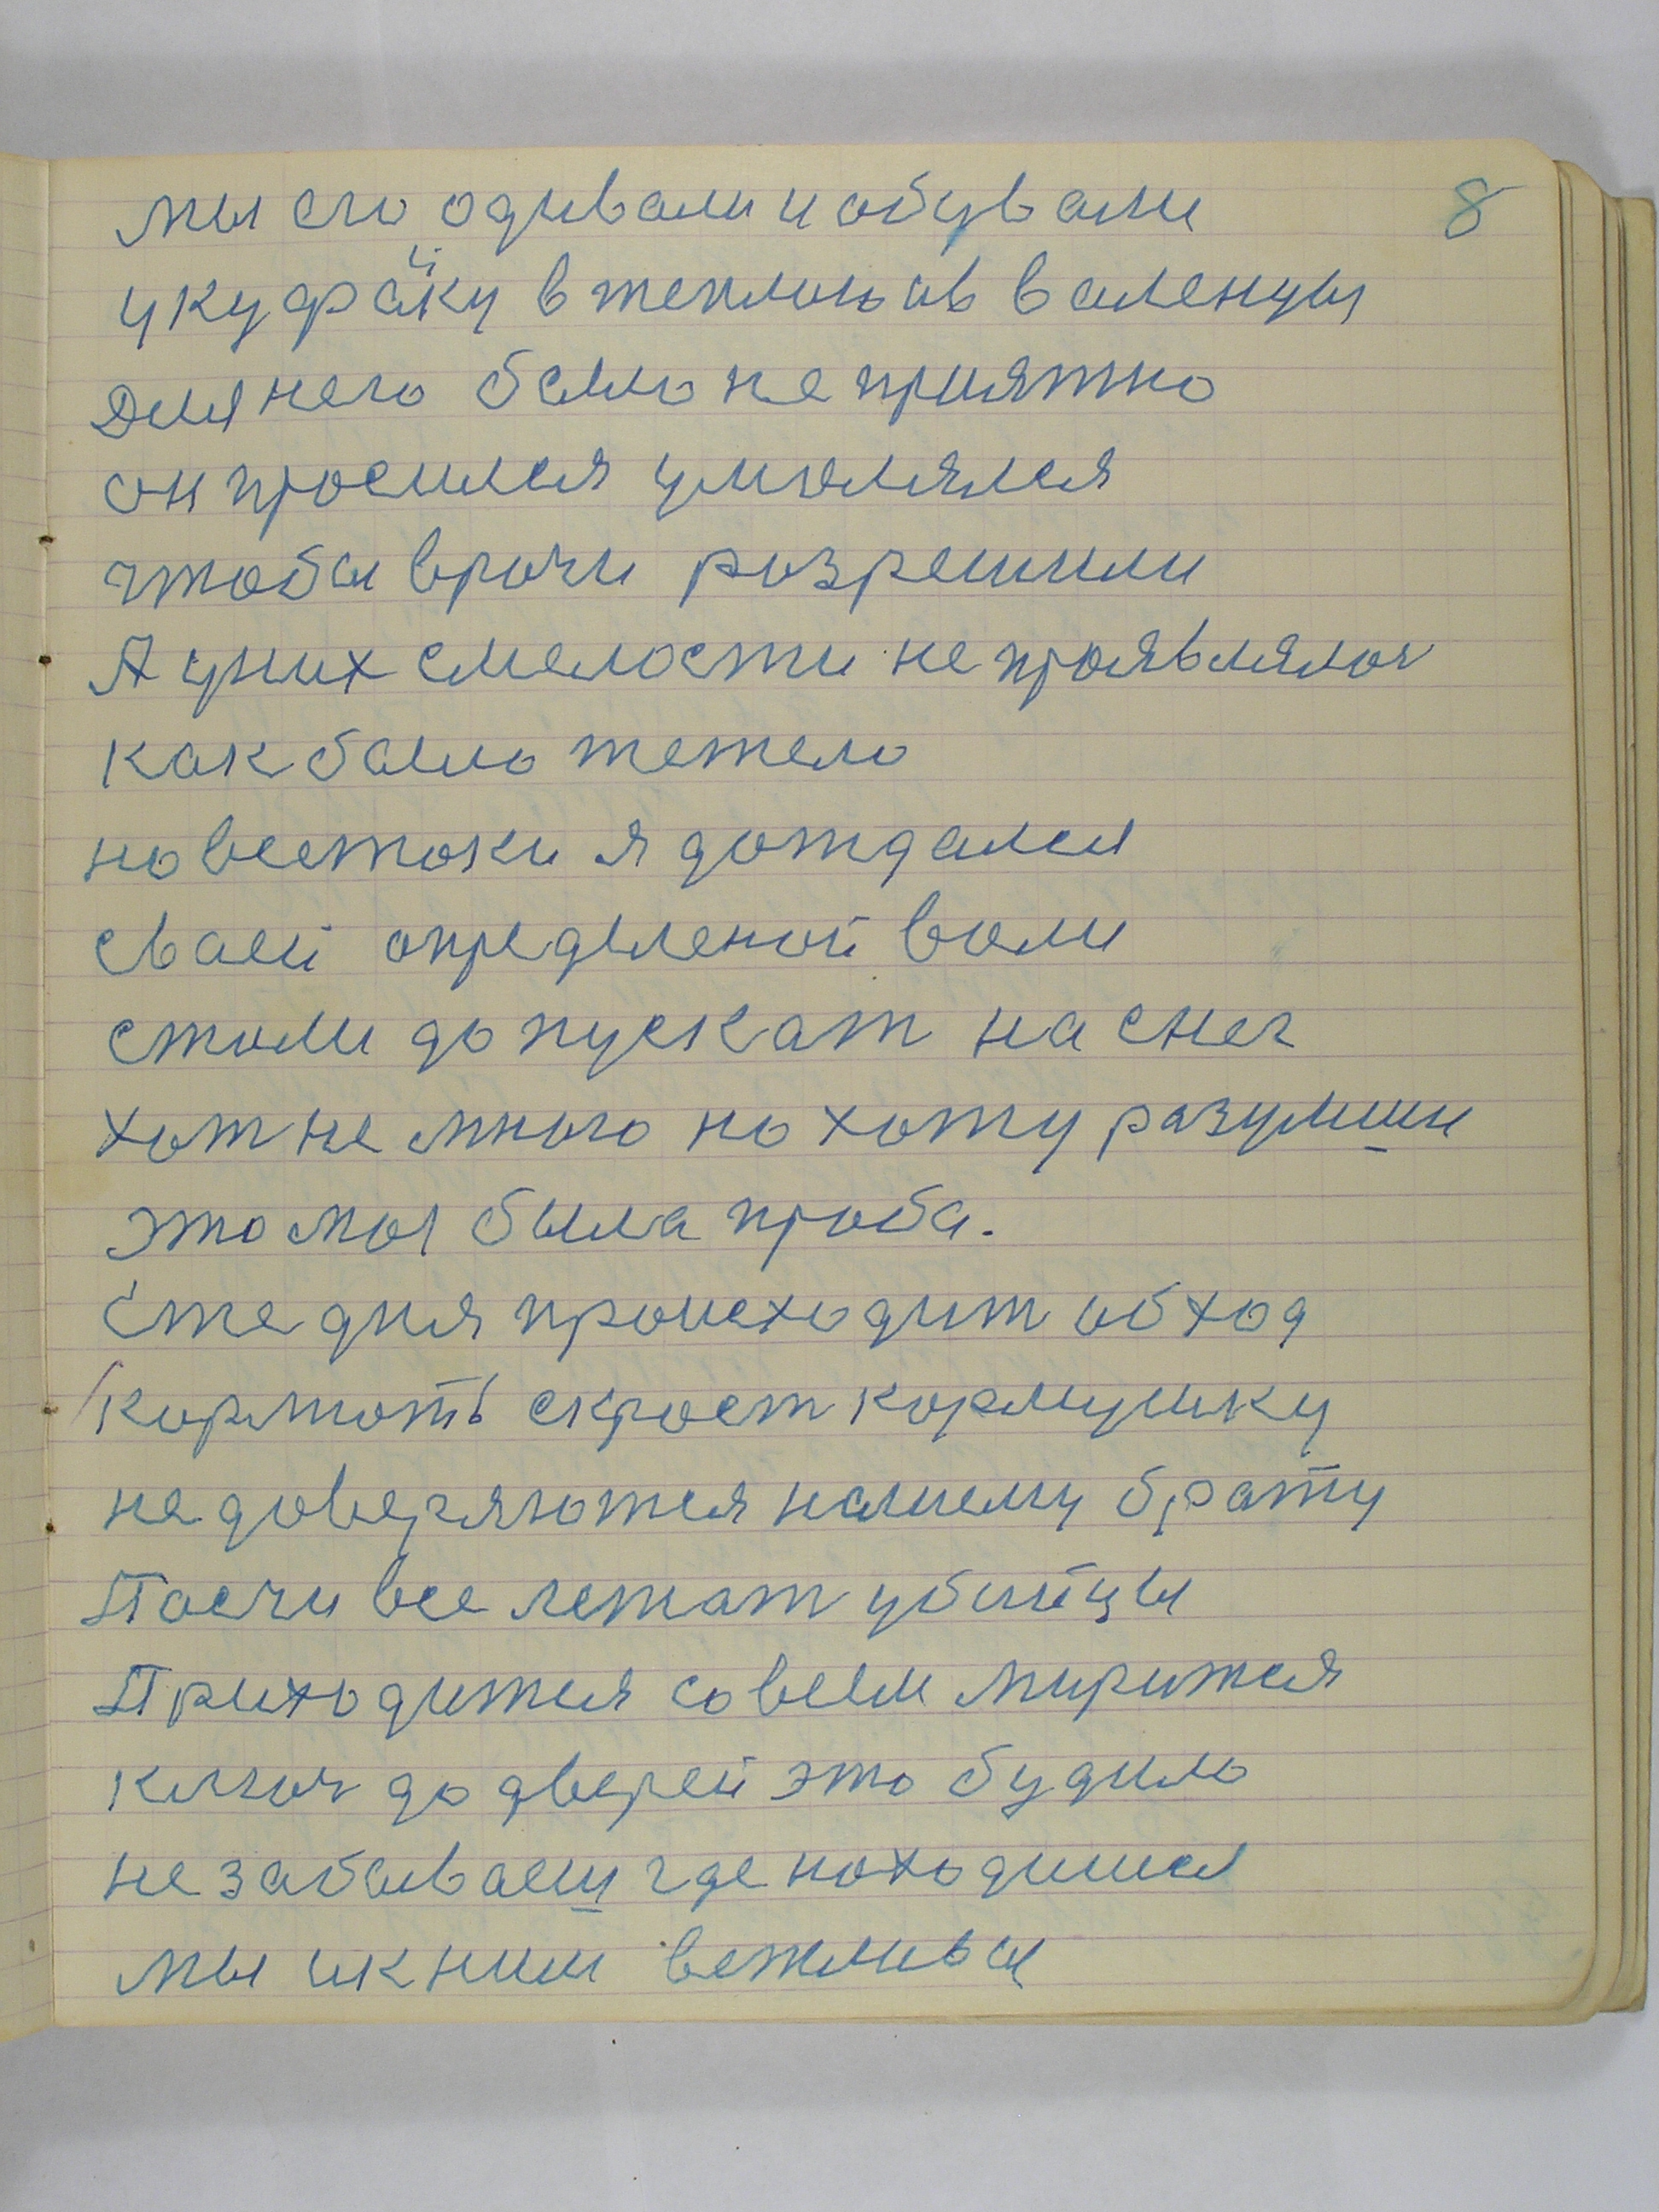 мы его одивали и обували 8
у куфайку в теплою ив валенцы
Для него было не приятно
он просился умолялся
чтобы врачи розрешили
А уних смелости не проявлялос
как было тежело
но всетоки я дождался
сваей определеной воли
стали допускат на снег
хот не много но хожу разумиши
это моя была проба.
Еже дня происходит обход
кормють скрост кормушку
не доверяются нашему брату
Посчи все лежат убийцы
Приходится со всем мирится
ключ до дверей это будило
не забываеш где находишся
мы ик ним вежливы